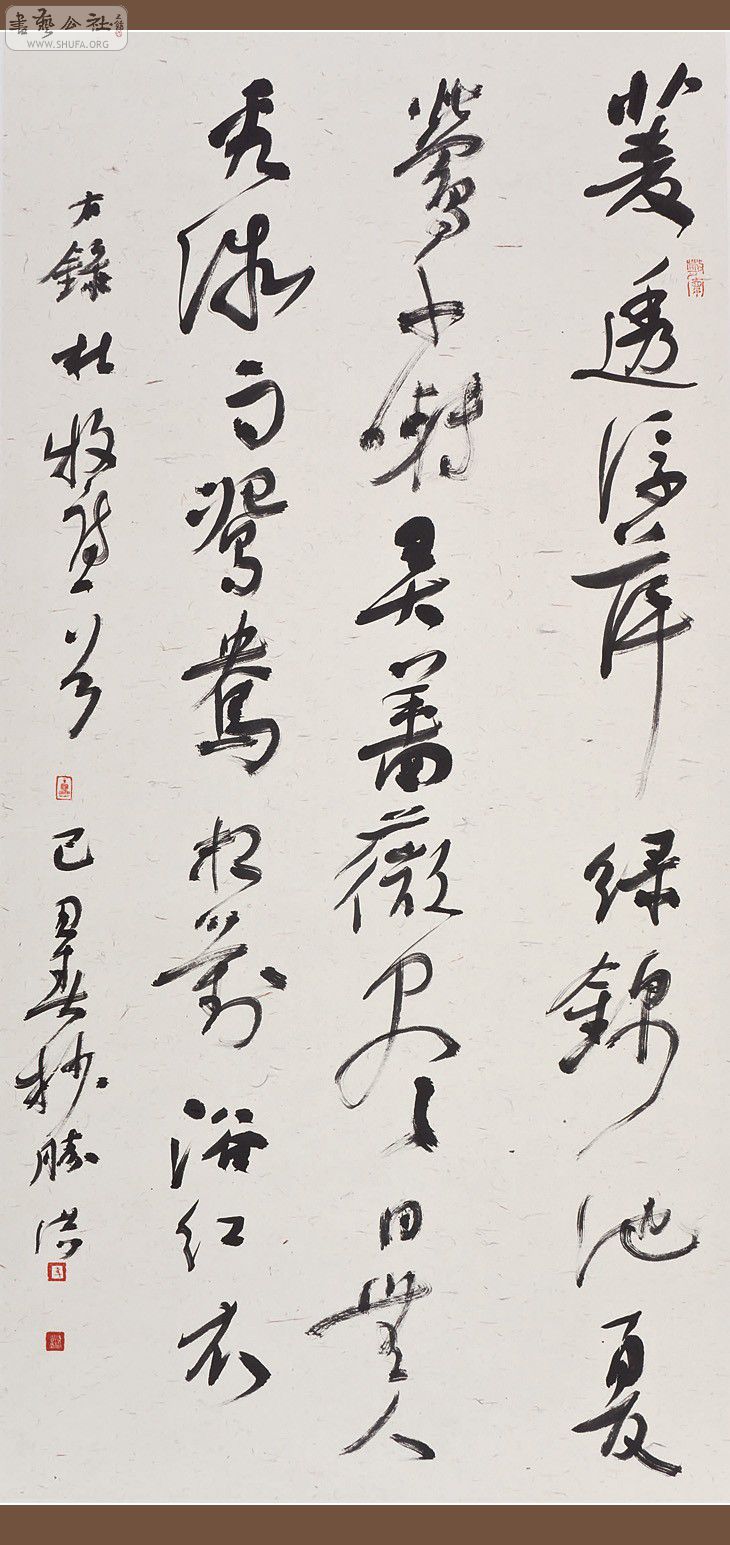 書藝公社
WWW.SHUFA.ORG
菱透浮萍綠錦池夏
鶯千囀弄薔薇盡日無人
看微雨鴛鴦相對浴紅衣
右錄杜牧
己丑春杪勝洪